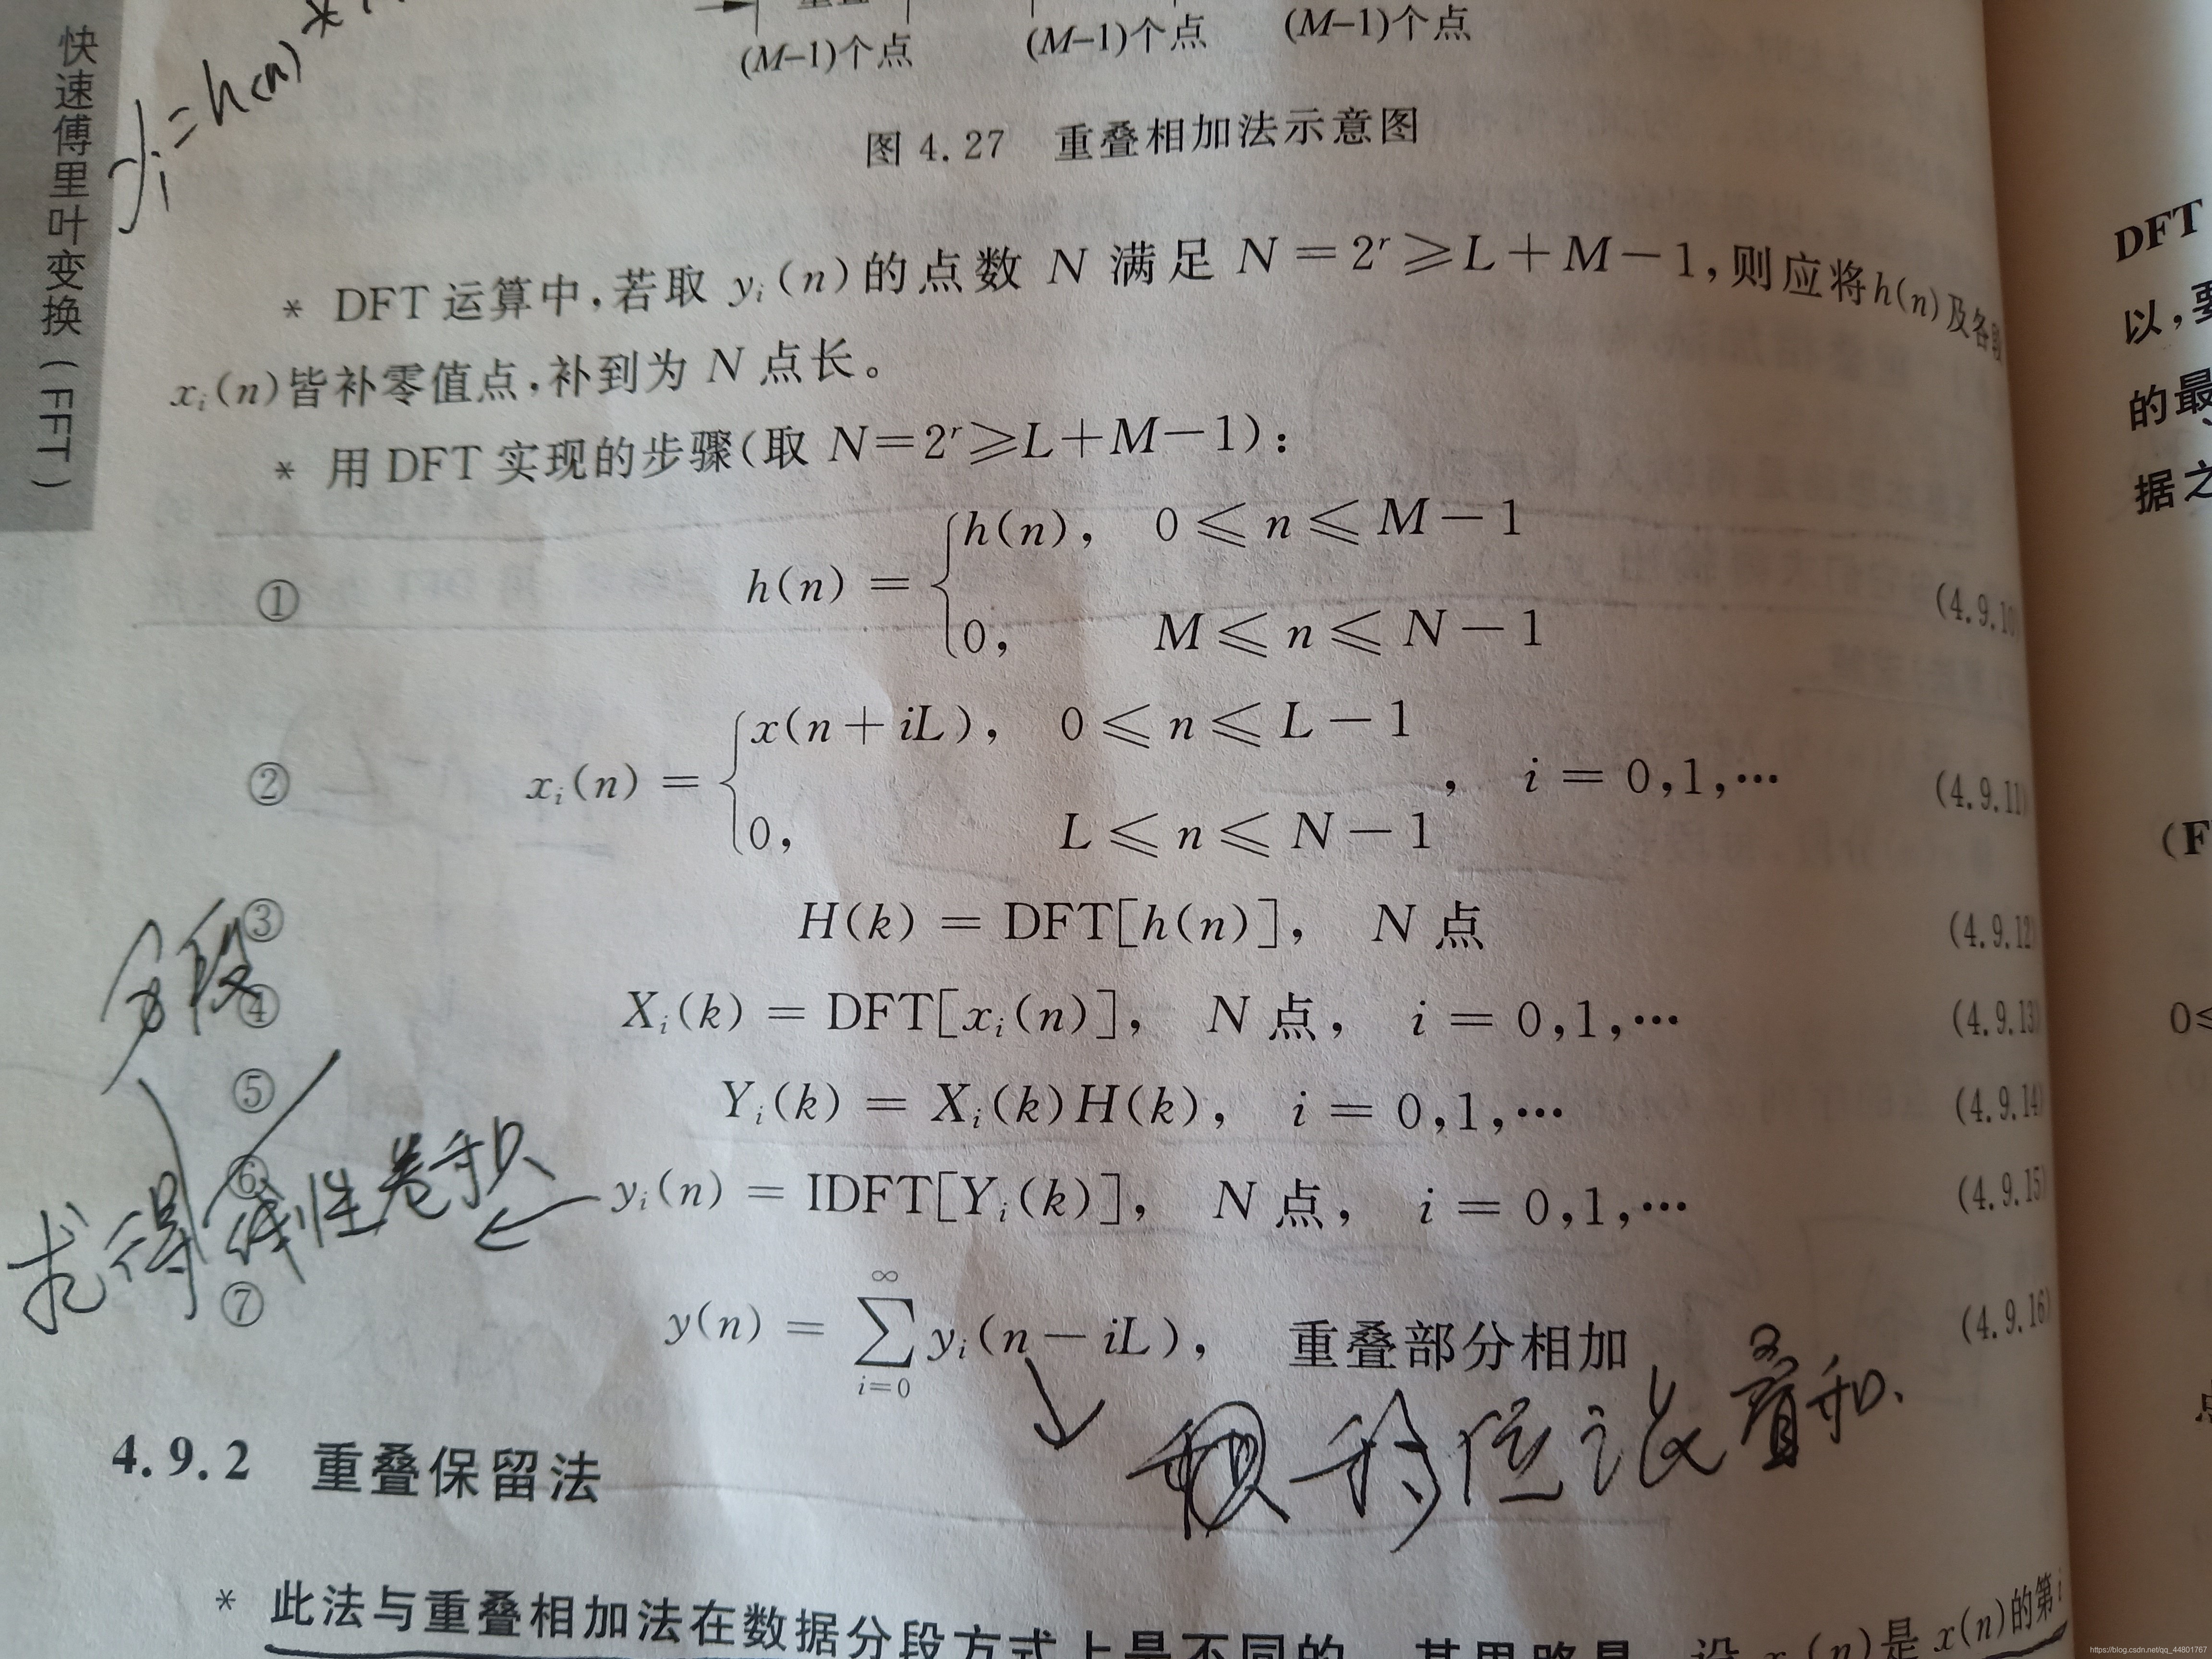 快速傅里叶变换(FFT)
(M-1)个点 (M-1)个点 (M-1)个点
=h(n)*
图 4.27 重叠相加法示意图
* DFT 运算中,若取 yᵢ(n)的点数 N 满足 N=2ʳ≥L+M-1,则应将h(n)及各段
xᵢ(n)皆补零值点,补到为 N 点长。
* 用 DFT 实现的步骤(取 N=2ʳ≥L+M-1):
① h(n) = { h(n), 0≤n≤M-1 (4.9.10
0, M≤n≤N-1
② xᵢ(n) = { x(n+iL), 0≤n≤L-1 , i=0,1,⋯ (4.9.11)
0, L≤n≤N-1
分段
③ H(k) = DFT[h(n)], N 点 (4.9.12)
④ Xᵢ(k) = DFT[xᵢ(n)], N 点, i=0,1,⋯ (4.9.13)
⑤ Yᵢ(k) = Xᵢ(k)H(k), i=0,1,⋯ (4.9.14)
求得线性卷积
⑥ yᵢ(n) = IDFT[Yᵢ(k)], N 点, i=0,1,⋯ (4.9.15)
⑦ y(n) = ∑_{i=0}^{∞} yᵢ(n-iL), 重叠部分相加 (4.9.16)
移位
4.9.2 重叠保留法
* 此法与重叠相加法在数据分段方式上是不同的 其思路是 设 (n)是 x(n)的第i
DFT
以,要
的最
据之
(F
0≤
点
https://blog.csdn.net/qq_44801767